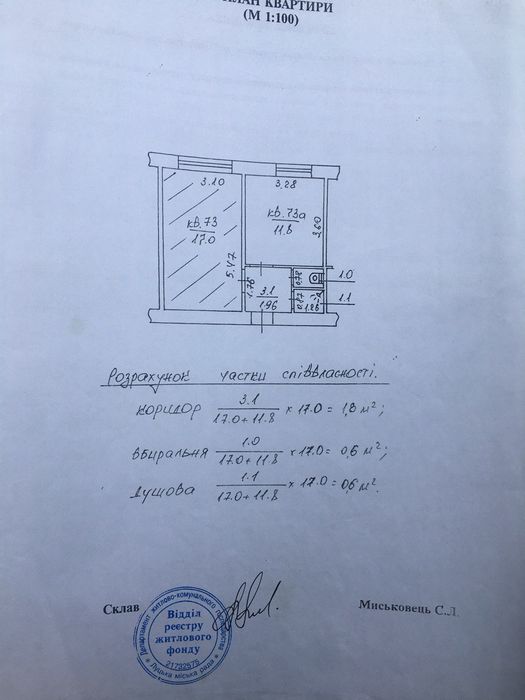 ПЛАН КВАРТИРИ
(М 1:100)
3.10
3.28
кв. 73
17.0
кв. 73а
11.8
3.60
5.47
1.76
3.1
1.96
0.78
1.0
0.87
1.26
1.1
Розрахунок частки співвласності.
коридор 3.1 / 17.0 + 11.8 х 17.0 = 1,8 м²;
вбиральня 1.0 / 17.0 + 11.8 х 17.0 = 0,6 м²;
душова 1.1 / 17.0 + 11.8 х 17.0 = 0,6 м².
Склав
Миськовець С.Л.
Департамент житлово-комунального господарства
Відділ
реєстру
житлового
фонду
21792575
Луцька міська рада